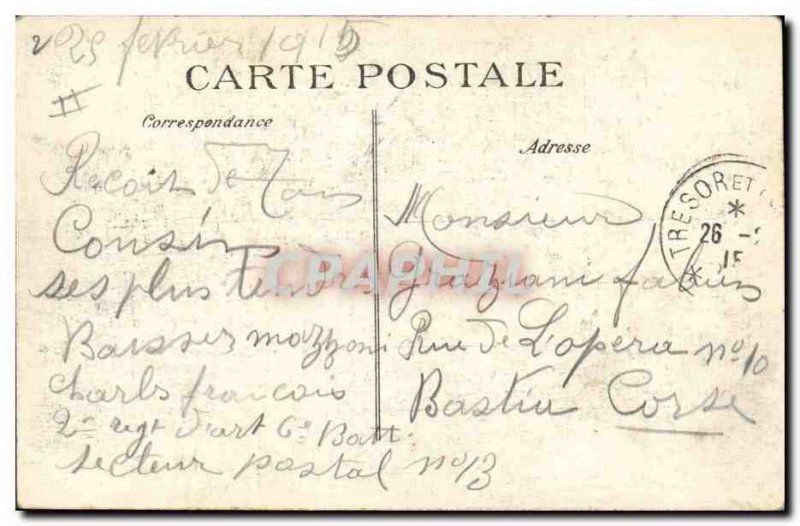 25 fevrier 1915
CARTE POSTALE
Correspondance
Reçoit de Ton
Cousin
ses plus Tendre
Baisser mozzoni
Charls francois
2e regt d'art 6e Batt.
secteur postal no 13
Adresse
Monsieur
Graziani fabien
Rue de L'opera no 10
Bastia Corse
TRESOR ET
26
15
CPAPHIL